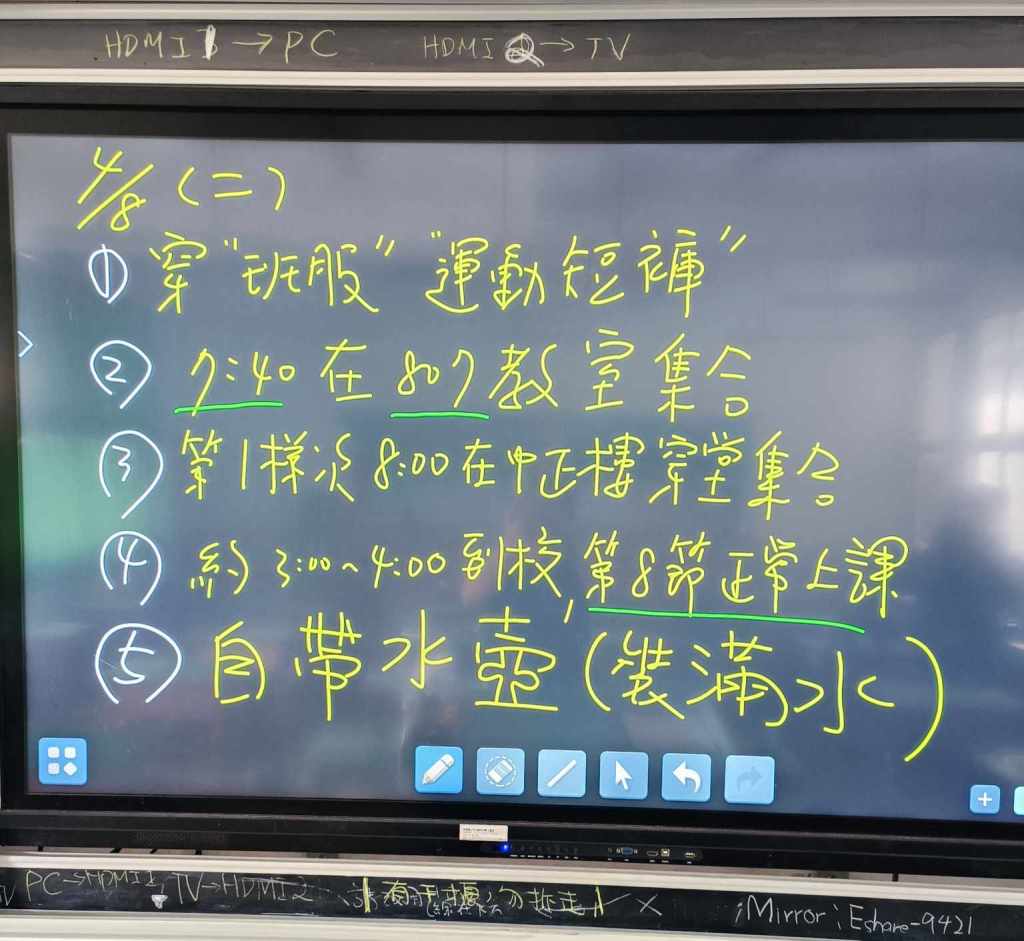 HDMI 1 → PC HDMI 2 → TV
4/8 (二)
① 穿"班服" "運動短褲"
② 7:40 在 807 教室集合
③ 第1梯次 8:00 在中正樓穿堂集合
④ 約 3:00~4:00 到校, 第8節正常上課
⑤ 自帶水壺(裝滿水)
PC→HDMI 1, TV→HDMI 2 勿拔走 iMirror: Eshare-9421